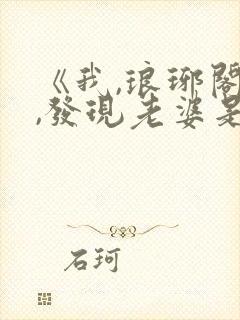 《我,琅琊閣
,發現老婆是
石珂